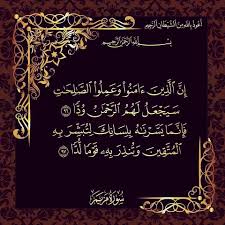 أعوذ بالله من الشيطان الرجيم
بسم الله الرحمن الرحيم
إِنَّ الَّذِينَ ءَامَنُوا وَعَمِلُوا الصَّٰلِحَٰتِ
سَيَجْعَلُ لَهُمُ الرَّحْمَٰنُ وُدًّا ٩٦
فَإِنَّمَا يَسَّرْنَٰهُ بِلِسَانِكَ لِتُبَشِّرَ بِهِ
الْمُتَّقِينَ وَتُنذِرَ بِهِ قَوْمًا لُّدًّا ٩٧
سورة مريم